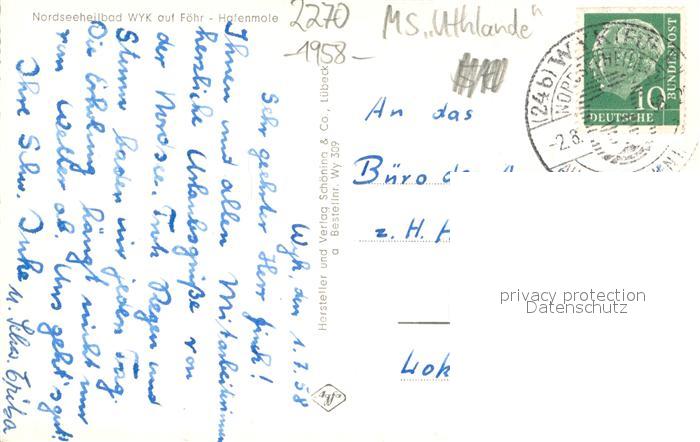 Nordseeheilbad WYK auf Föhr - Hafenmole
2270
-1958-
MS „Uthlande"
Wyk, den 1.7.58
Sehr geehrter Herr
Ihnen und allen Mitarbeiterinnen
herzliche Urlaubsgrüße von
der Nordsee. Trotz Regen und
Sturm baden wir jeden Tag.
Die Erholung hängt nicht nur
vom Wetter ab. Uns geht's gut!
Ihre Schw. Inke
u. Schw.
Hersteller und Verlag Schöning & Co., Lübeck
a Bestellnr. Wy 309
An das
Büro de
z. H. H
Lok
(24b) WYK
NORDSEEHEILBAD
-2.8.
10
DEUTSCHE
BUNDESPOST
privacy protection
Datenschutz